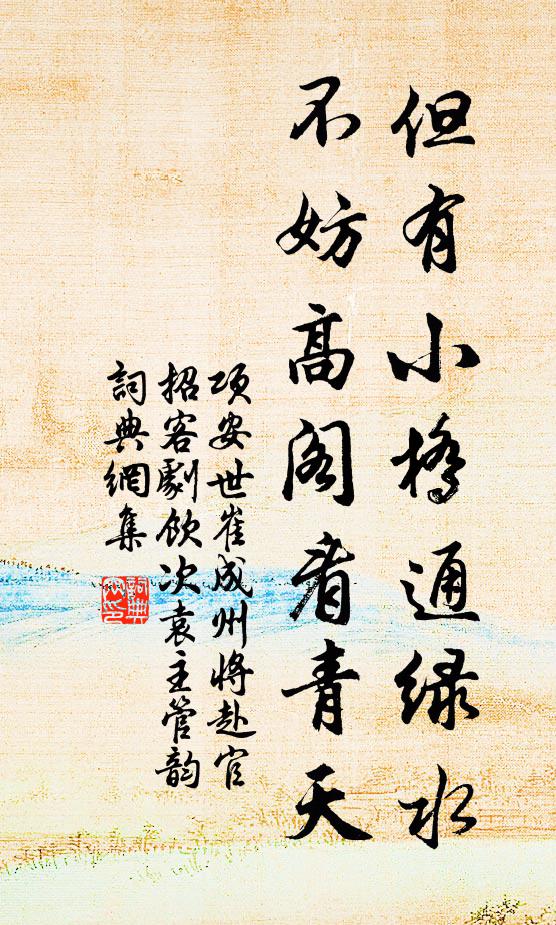 但有小橋通緑水
不妨高閣看青天
项安世崔成州將赴官
招客劇飲次袁主管韵
詞典網集